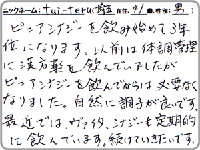 ニックネーム:tui-teru 様 年齢:91 歳 性別:男
ピュアシナジーを飲み始めて3年
位になります。以前は体調管理
に漢方薬を飲んでいましたが
ピュアシナジーを飲んでからは必要なく
なりました。自然に調子が良いです。
最近では、ヴァイタ、シナジーも定期的
に飲んでいます。続けていきたいです。